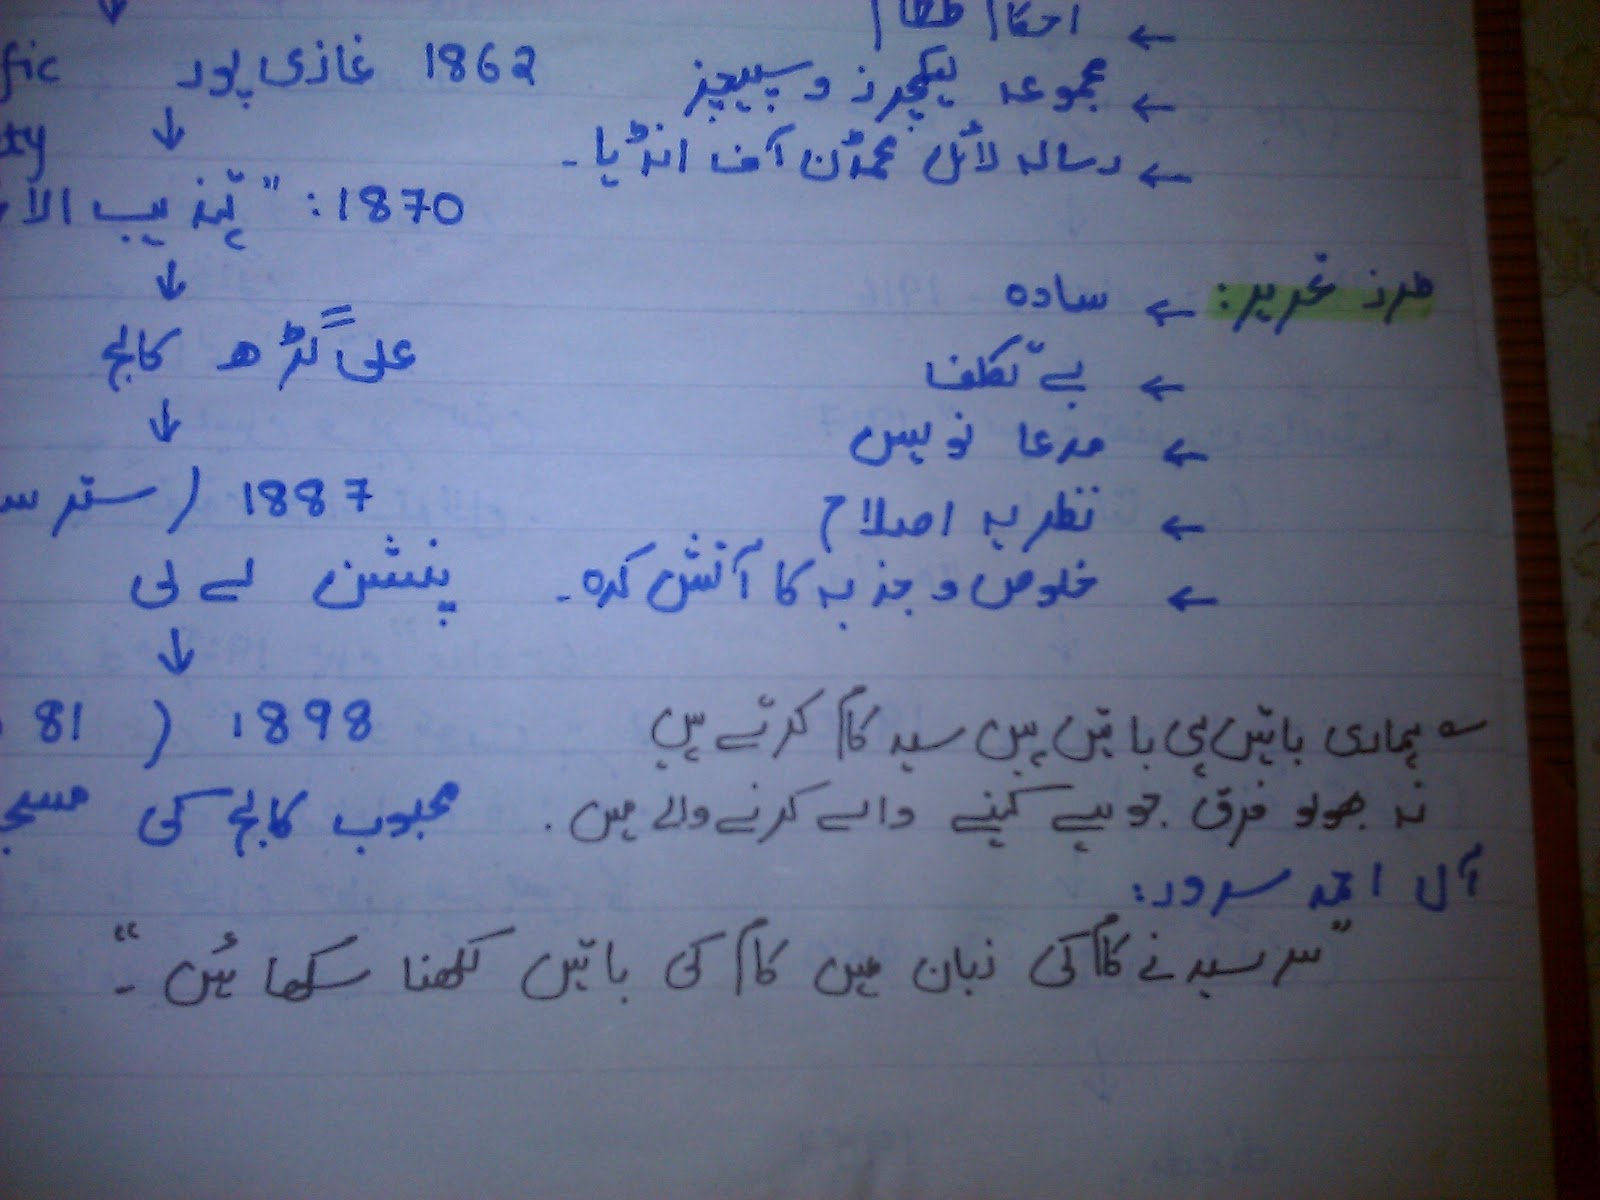 ← احکام طعام
← مجموعہ لیکچرز و سپیچز
← رسالہ لائل محمڈن آف انڈیا۔
طرز تحریر: ← سادہ
← بے تکلف
← مدعا نویس
← نظریہ اصلاح
← خلوص و جذبہ کا آتش کدہ۔
؎ ہماری باتیں ہی باتیں ہیں سید کام کرتے ہیں
نہ بھولو فرق جو ہے کہنے والے کرنے والے میں.
آل احمد سرور:
"سرسید نے کام کی زبان میں کام کی باتیں لکھنا سکھائیں"۔
↓
fic 1862 غازی پور
ty ↓
1870: "تہذیب الا
↓
علی گڑھ کالج
↓
1887 ( ستر س
پنشن لے لی
↓
1898 ( 81
محبوب کالج کی مسج